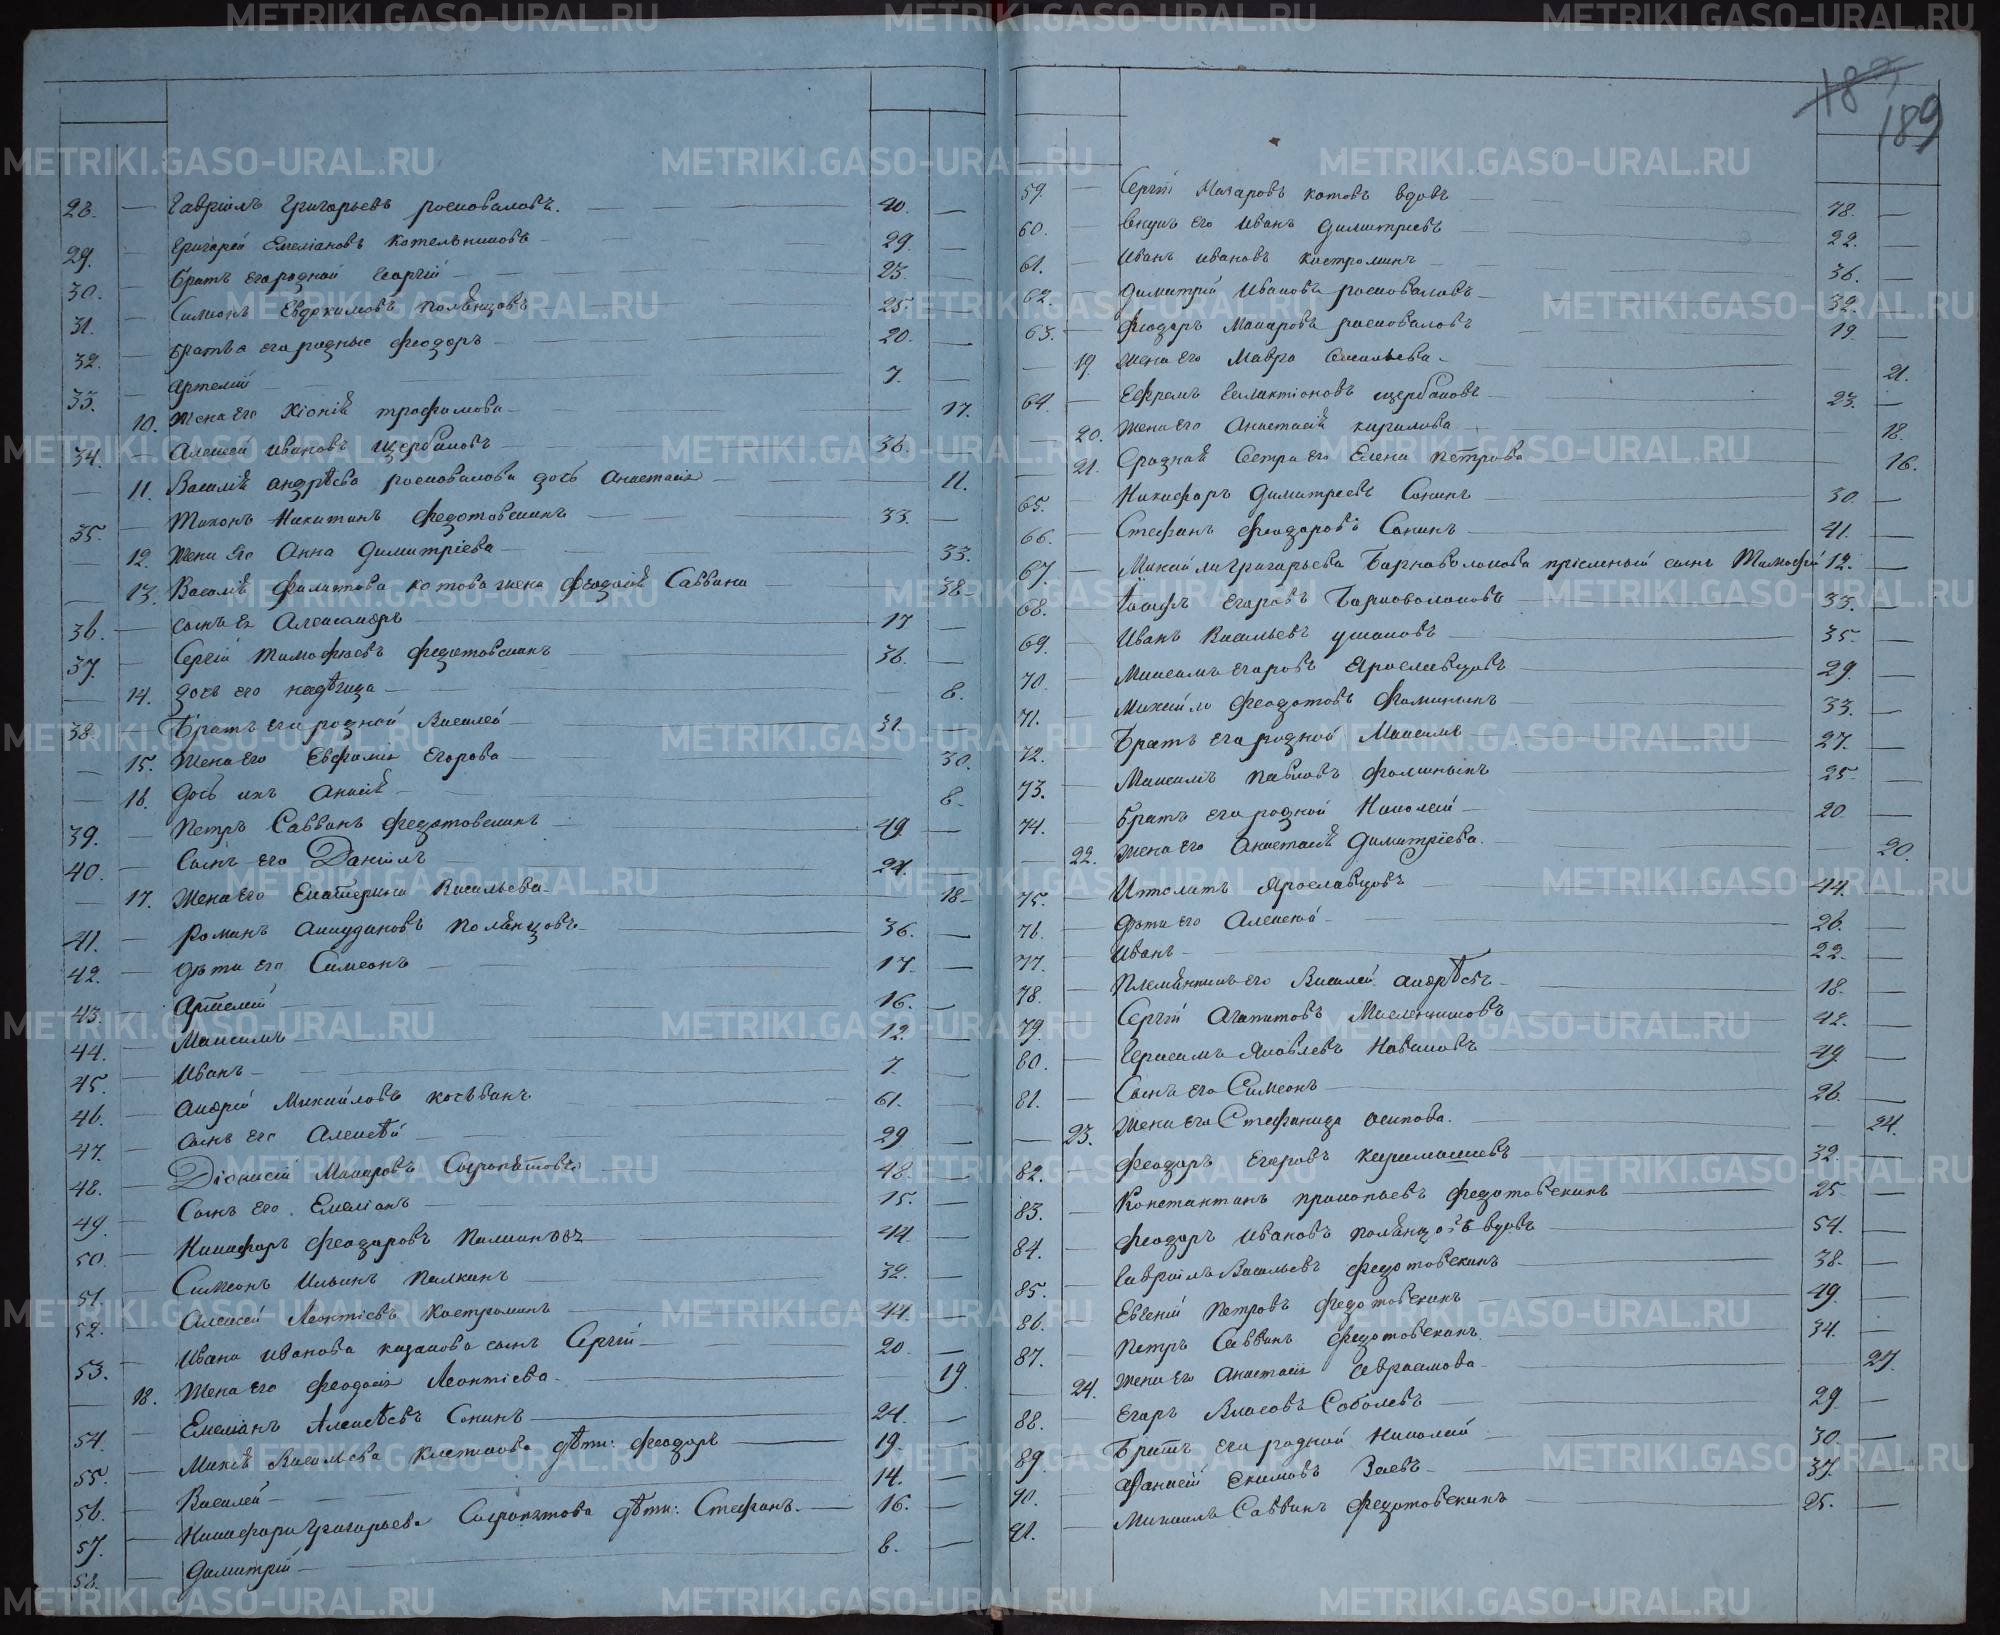 189
28. — Гавріилъ Григорьевъ росповаловъ. 40. —
29. — Григорей Емеліановъ Котельниковъ 29. —
30. — Братъ его родной Георгій 23. —
31. — Симеонъ Евдокимовъ полѣнцовъ 25. —
32. — Братья его родные Феодоръ 20. —
33. — Артемій 7. —
— 10. Жена его Хіонія трофимова 17.
34. — Алексей Ивановъ Щербаковъ 36. —
— 11. Василія Андрѣева росповалова дочь Анастасія 11.
35. — Тихонъ Никитинъ Федотовскихъ 33. —
— 12. Жена Его Анна Димитріева 33.
— 13. Василія Филатова котова жена Феодосія Саввина 38.
36. — сынъ ея Александръ 17
37. — Сергій тимофеевъ Федотовскихъ 36. —
— 14. дочь его надѣжда 8.
38. — Братъ его родной Василей 31. —
— 15. Жена его Евфимія Егорова 30.
— 16. Дочь ихъ 8.
39. — Петръ Саввинъ Федотовскихъ 49. —
40. — Сынъ его Даніилъ 24. —
— 17. Жена его Екатерина Васильева 18.
41. — Романъ полѣнцовъ 36. —
42. — дѣти его Симеонъ 17. —
43. — Артемій 16. —
44. — Максимъ 12. —
45. — Иванъ 7. —
46. — Андрей Михайловъ 61. —
47. — сынъ его Алексѣй 29 —
48. — Діонисій Макаровъ 48. —
49. — Сынъ его Емеліанъ 15. —
50. — Никифоръ Феодоровъ 44. —
51. — Симеонъ Ильинъ Палкинъ 32. —
52. — Алексей Леонтіевъ Костроминъ 44. —
53. — Ивана Иванова казакова сынъ Сергій 20. —
— 18. Жена его Феодосія Леонтіева 19
54. — Емеліанъ Алексѣевъ Сонинъ 24. —
55. — Васильева дѣти: Феодоръ 19. —
56. — Василей 14. —
57. — Никифора Григорьева дѣти: Стефанъ 16. —
58. — Димитрій 8. —
59. — Сергій Макаровъ котовъ вдовъ 78. —
60. — Внукъ его Иванъ Димитріевъ 22. —
61. — Иванъ Ивановъ Костроминъ 36. —
62. — Димитрій Ивановъ росповаловъ 32. —
63. — Феодоръ Макаровъ росповаловъ 19. —
— 19. жена его Мавра Васильева 21.
64. — Ефремъ Щербаковъ 23. —
— 20. Жена его Анастасія кирилова 18.
— 21. Сродная Сестра его Елена петрова 16.
65. — Никифоръ Димитріевъ Сонинъ 30. —
66. — Стефанъ Феодоровъ Сонинъ 41. —
67. — Михайла Григорьева Барноволокова пріемный сынъ Тимофей 12. —
68. — Іосифъ Егоровъ Барноволоковъ 33. —
69. — Иванъ Васильевъ ушаковъ 35. —
70. — Максимъ Егоровъ Ярославцовъ 29. —
71. — Михайло Феодотовъ Фоминыхъ 33. —
72. — Братъ его родной Максимъ 27. —
73. — Максимъ Павловъ Фоминыхъ 25. —
74. — Братъ его родной Николай 20. —
— 22. Жена его Анастасія Димитріева. 20.
75. — Ипполитъ Ярославцовъ 44. —
76. — Дѣти его Алексей 26. —
77. — Иванъ 22. —
78. — Племянникъ его Василей Андрѣевъ 18. —
79. — Сергій Агапитовъ Масленниковъ 42. —
80. — Герасимъ Яковлевъ Новиковъ 49. —
81. — Сынъ его Симеонъ 26. —
— 23. Жена его Стефанида осипова. 24.
82. — Феодоръ Егоровъ 32. —
83. — Константинъ прокопьевъ Федотовскихъ 25. —
84. — Феодоръ Ивановъ полѣнцовъ вдовъ 54. —
85. — Гавріилъ Васильевъ Федотовскихъ 38. —
86. — Евгеній Петровъ Федотовскихъ 49. —
87. — Петръ Саввинъ Федотовскихъ 34. —
— 24. Жена его Анастасія Авраамова 27.
88. — Егоръ Власовъ Соболевъ 29 —
89. — Братъ его родной Николай 30. —
90. — Афанасій Екимовъ 37. —
91. — Михаилъ Саввинъ Федотовскихъ 25. —
METRIKI.GASO-URAL.RU